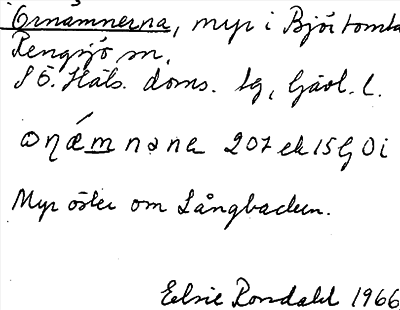 Örnämnerna, myr i Björtomta
Rengsjö sn.
SÖ. Häls. doms. tg, Gävl. l.
207 ek 15 G 0 i
Myr öster om Långbacken.
Elsie Rondahl 1966.